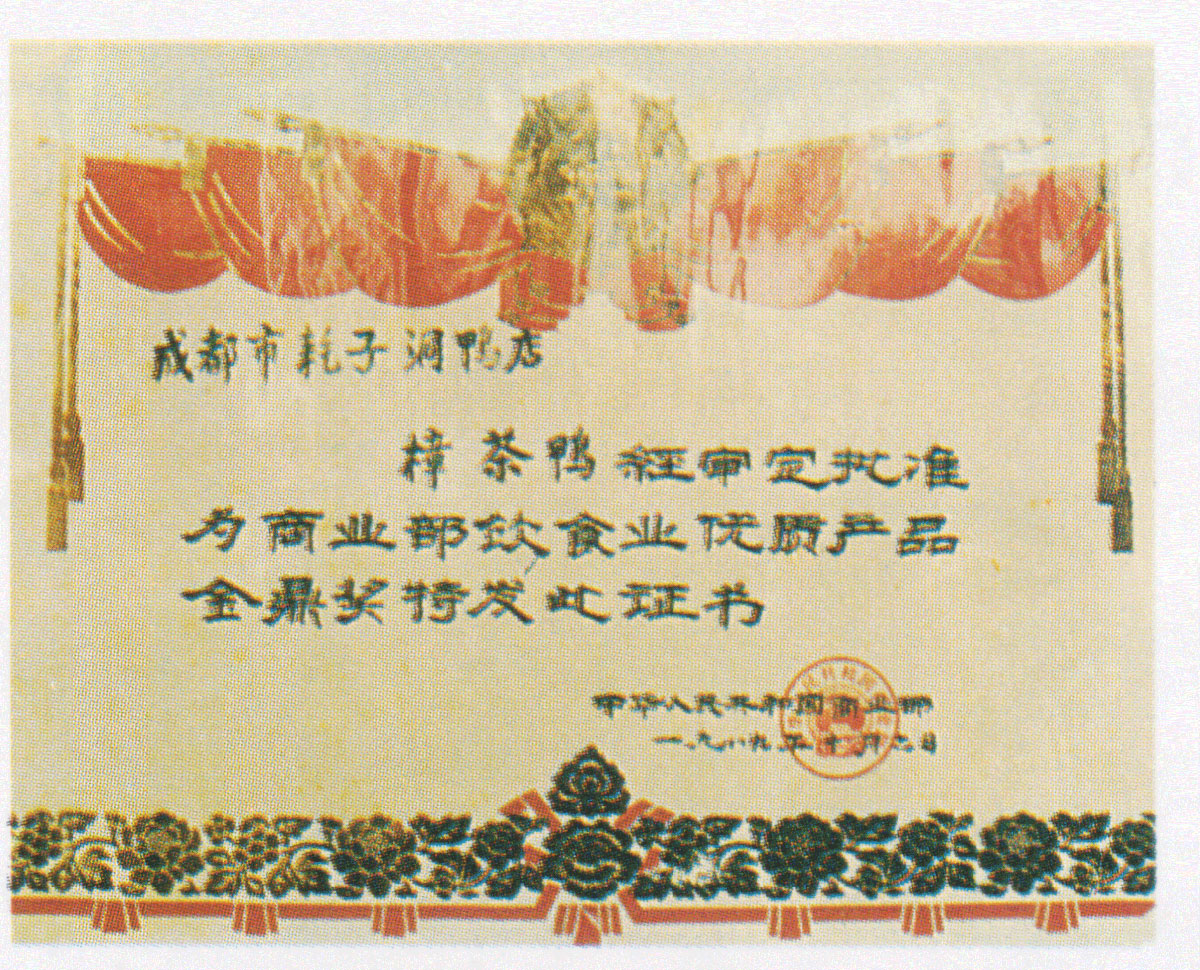 成都市耗子洞鸭店
樟茶鸭經审定批准
为商业部饮食业优质产品
金鼎奖特发此证书
中华人民共和国商业部
一九八九年十二月六日